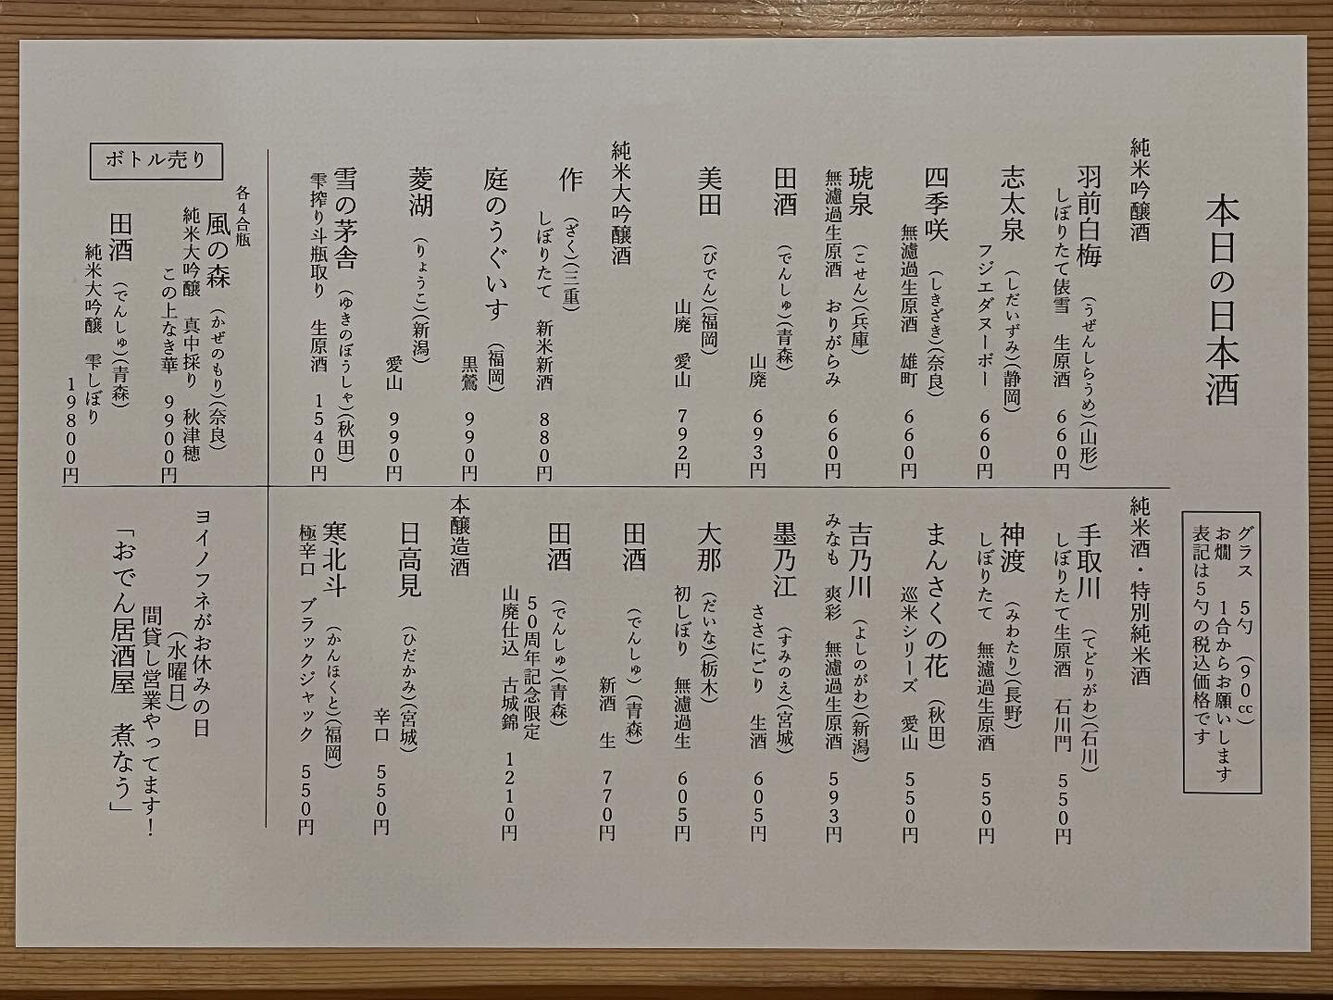 本日の日本酒
グラス 5勺(90cc)
お燗 1合からお願いします
表記は5勺の税込価格です
純米吟醸酒
羽前白梅(うぜんしらうめ)(山形)
しぼりたて俵雪 生原酒 660円
志太泉(しだいずみ)(静岡)
フジエダヌーボー 660円
四季咲(しきざき)(奈良)
無濾過生原酒 雄町 660円
琥泉(こせん)(兵庫)
無濾過生原酒 おりがらみ 660円
田酒(でんしゅ)(青森)
山廃 693円
美田(びでん)(福岡)
山廃 愛山 792円
純米大吟醸酒
作(ざく)(三重)
しぼりたて 新米新酒 880円
庭のうぐいす(福岡)
黒鶯 990円
菱湖(りょうこ)(新潟)
愛山 990円
雪の茅舎(ゆきのぼうしゃ)(秋田)
雫搾り斗瓶取り 生原酒 1540円
ボトル売り
各4合瓶
風の森(かぜのもり)(奈良)
純米大吟醸 真中採り 秋津穂
この上なき華 9900円
田酒(でんしゅ)(青森)
純米大吟醸 雫しぼり
19800円
純米酒・特別純米酒
手取川(てどりがわ)(石川)
しぼりたて生原酒 石川門 550円
神渡(みわたり)(長野)
しぼりたて 無濾過生原酒 550円
まんさくの花(秋田)
巡米シリーズ 愛山 550円
吉乃川(よしのがわ)(新潟)
みなも 爽彩 無濾過生原酒 593円
墨乃江(すみのえ)(宮城)
ささにごり 生酒 605円
大那(だいな)(栃木)
初しぼり 無濾過生 605円
田酒(でんしゅ)(青森)
新酒 生 770円
田酒(でんしゅ)(青森)
50周年記念限定
山廃仕込 古城錦 1210円
本醸造酒
日高見(ひだかみ)(宮城)
辛口 550円
寒北斗(かんほくと)(福岡)
極辛口 ブラックジャック 550円
ヨイノフネがお休みの日
(水曜日)
間貸し営業やってます!
「おでん居酒屋 煮なう」